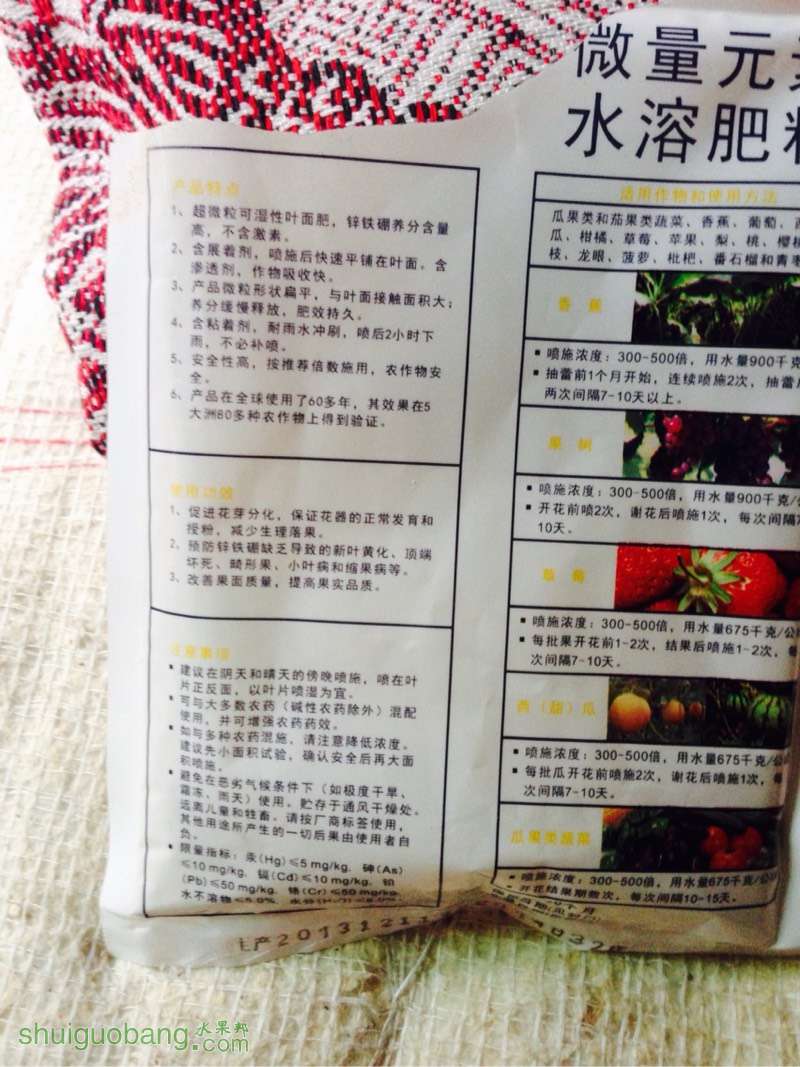 微量元
水溶肥
产品特点
1、超微粒可湿性叶面肥，锌铁硼养分含量
高，不含激素。
2、含展着剂，喷施后快速平铺在叶面。含
渗透剂，作物吸收快。
3、产品微粒形状扁平，与叶面接触面积大；
养分缓慢释放，肥效持久。
4、含粘着剂，耐雨水冲刷，喷后2小时下
雨，不必补喷。
5、安全性高，按推荐倍数施用，农作物安
全。
6、产品在全球使用了60多年，其效果在5
大洲80多种农作物上得到验证。
使用功效
1、促进花芽分化，保证花器的正常发育和
授粉，减少生理落果。
2、预防锌铁硼缺乏导致的新叶黄化、顶端
坏死、畸形果、小叶病和缩果病等。
3、改善果面质量，提高果实品质。
注意事项
▪ 建议在阴天和晴天的傍晚喷施，喷在叶
片正反面，以叶片喷湿为宜。
▪ 可与大多数农药（碱性农药除外）混配
使用，并可增强农药药效。
▪ 如与多种农药混施，请注意降低浓度。
建议先小面积试验，确认安全后再大面
积喷施。
▪ 避免在恶劣气候条件下（如极度干旱、
霜冻、雨天）使用。贮存于通风干燥处。
远离儿童和牲畜。请按厂商标签使用，
其他用途所产生的一切后果由使用者自
负。
▪ 限量指标：汞(Hg)≤5 mg/kg. 砷(As)
≤10 mg/kg. 镉(Cd)≤10 mg/kg. 铅
(Pb)≤50 mg/kg. 铬(Cr)≤50 mg/kg.
水不溶物≤5.0%.
产20131211
适用作物和使用方法
瓜果类和茄果类蔬菜、香蕉、葡萄、
瓜、柑橘、草莓、苹果、梨、桃、樱
枝、龙眼、菠萝、枇杷、番石榴和青枣
香蕉
▪ 喷施浓度：300-500倍，用水量900千克
▪ 抽蕾前1个月开始，连续喷施2次，抽蕾
两次间隔7-10天以上。
果树
▪ 喷施浓度：300-500倍，用水量900千克
▪ 开花前喷2次，谢花后喷施1次，每次间隔7
10天。
草莓
▪ 喷施浓度：300-500倍，用水量675千克/公
▪ 每批果开花前1-2次，结果后喷施1-2次，每
次间隔7-10天。
西（甜）瓜
▪ 喷施浓度：300-500倍，用水量675千克/公
▪ 每批瓜开花前喷施2次，谢花后喷施1次，每
次间隔7-10天。
瓜果类蔬菜
▪ 喷施浓度：300-500倍，用水量675千克/公
▪ 开花结果期数次，每次间隔10-15天。
shuiguobang.com
水果邦